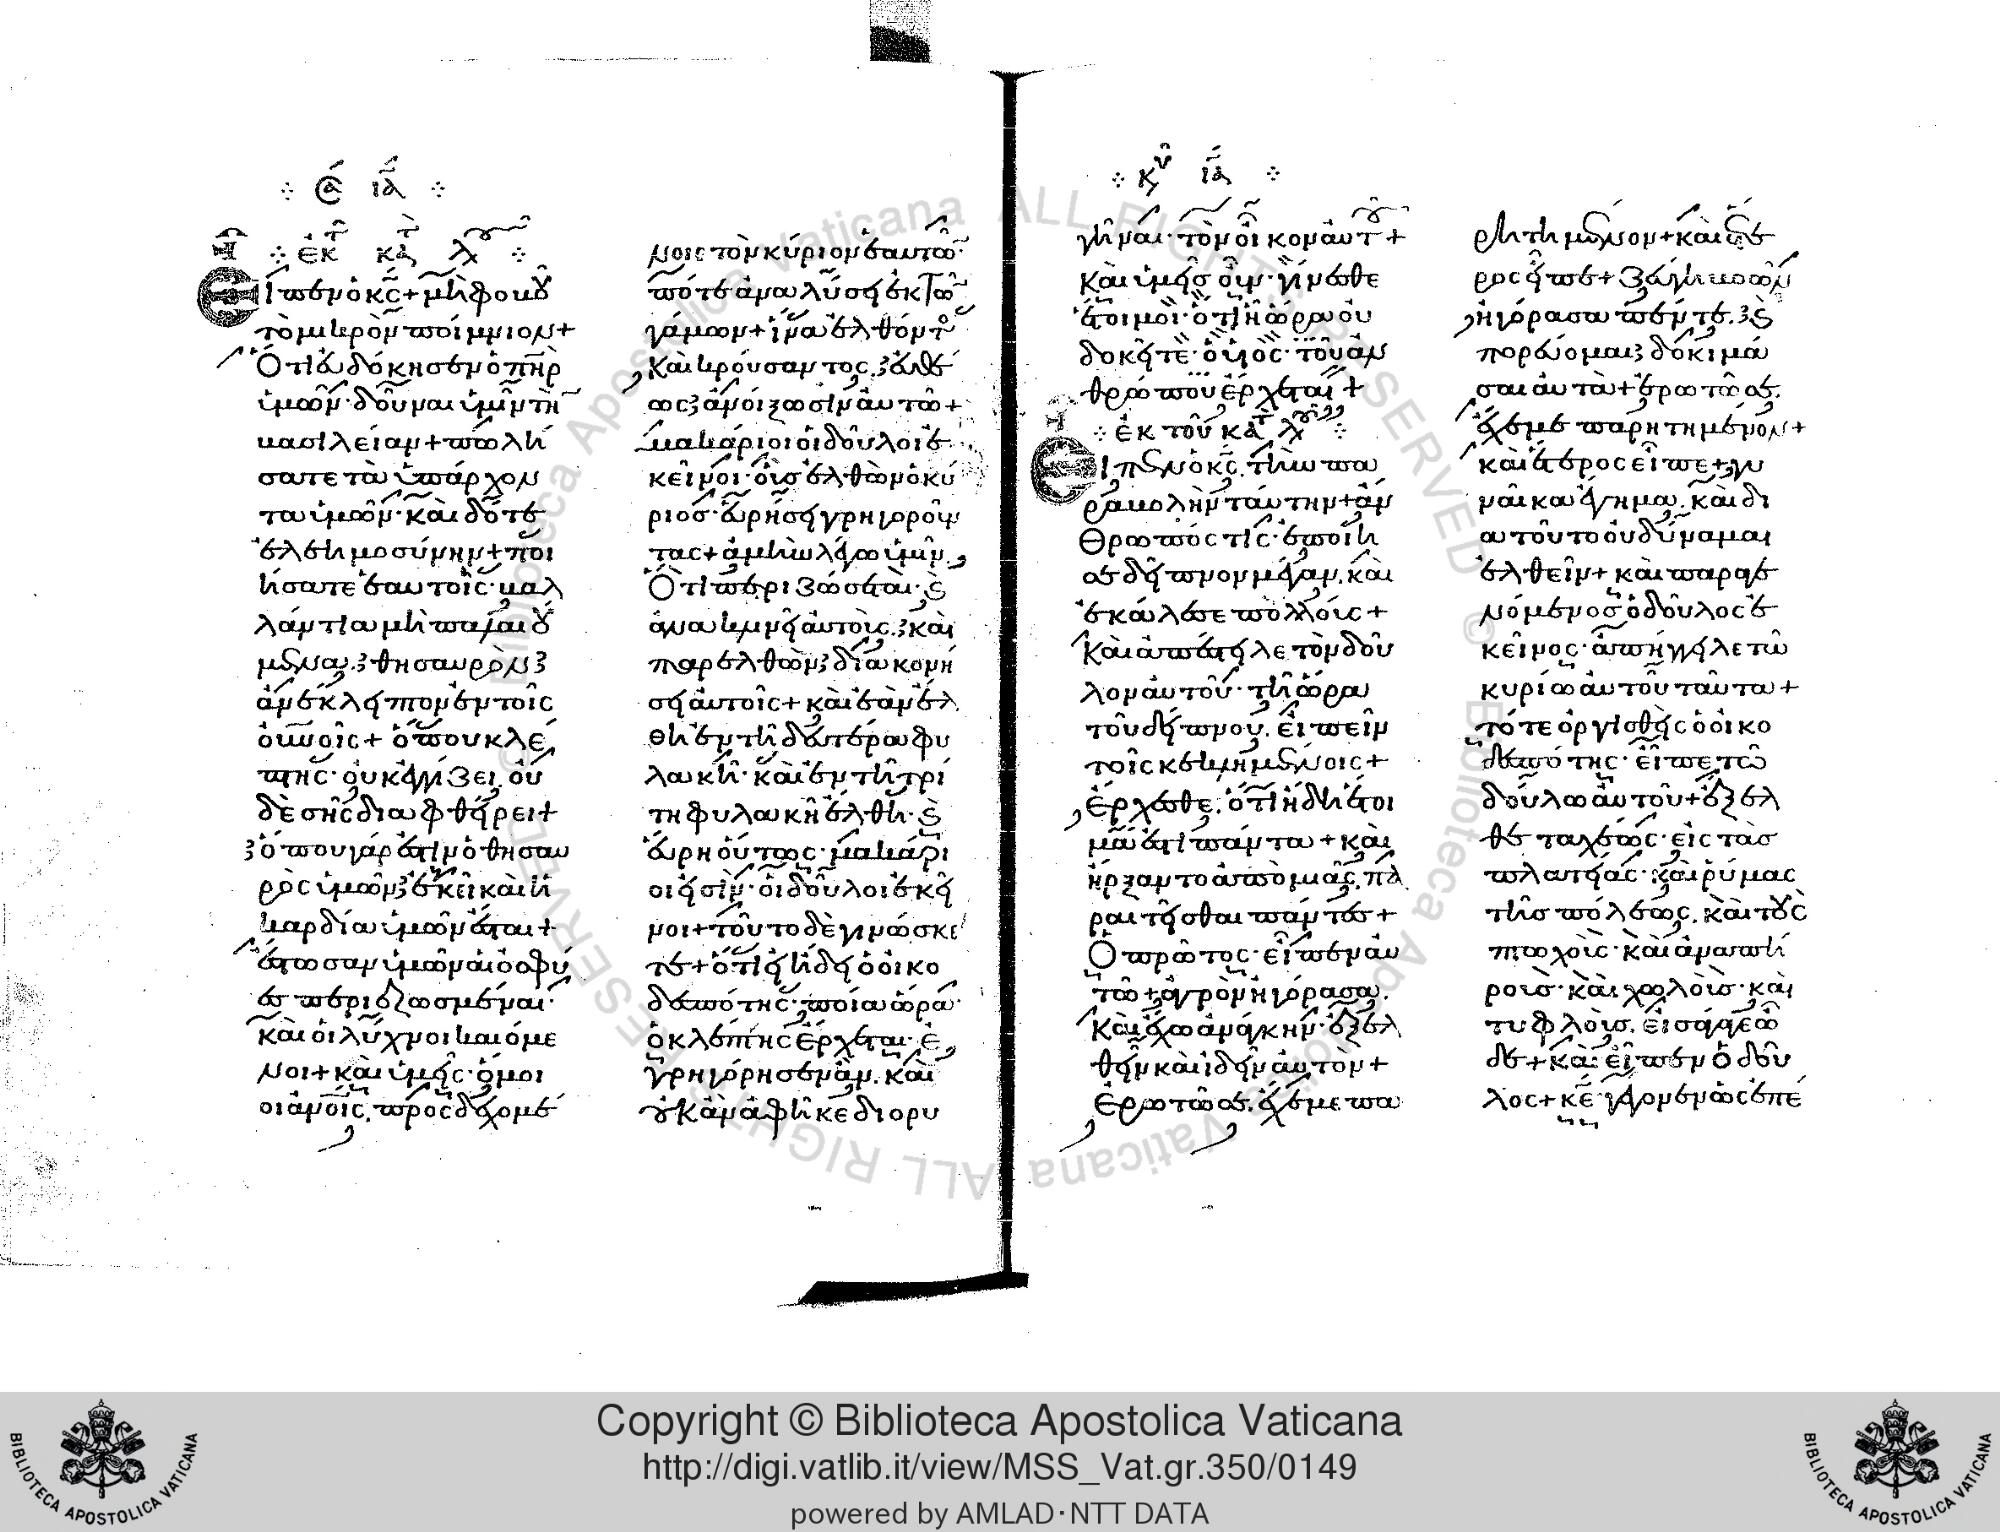 ἐκ τ κατ λου
Εἶπεν ὁ κς + μὴ φοβοῦ
τὸ μικρὸν ποίμνιον +
Ὅτι εὐδόκησεν ὁ πηρ
ὑμῶν· δοῦναι ὑμῖν τὴ
βασιλείαν + πωλή
σατε τὰ ὑπάρχον
τα ὑμῶν· καὶ δότε
ἐλεημοσύνην + ποι
ήσατε ἑαυτοῖς· βαλ
λάντια μὴ παλαιού
μενα. θησαυρὸν
ἀνέκλειπον ἐν τοῖς
οὐνοῖς + ὅπου κλέ
πτης· οὐκ ἐγγίζει, οὐ
δὲ σὴς διαφθείρει +
ὅπου γάρ ἐστιν ὁ θησαυ
ρὸς ὑμῶν ἐκεῖ καὶ ἡ
καρδία ὑμῶν ἔσται +
ἔστωσαν ὑμῶν αἱ ὀσφύ
ες περιεζωσμέναι·
καὶ οἱ λύχνοι καιόμε
νοι + καὶ ὑμεῖς· ὅμοι
οι ἀνοις, προσδεχομέ
νοις τὸν κύριον ἑαυτῶ
πότε ἀναλύσει ἐκ τῶ
γάμων + ἵνα ἐλθόντος
καὶ κρούσαντος, εὐθέ
ως ἀνοίξωσιν αὐτῶ +
μακάριοι οἱ δοῦλοι ἐ
κεῖνοι· οὓς ἐλθὼν ὁ κύ
ριος· εὑρήσει γρηγοροῦν
τας + ἀμὴν λέγω ὑμῖν,
Ὅτι περιζώσεται· καὶ
ἀνακλινεῖ αὐτοὺς, καὶ
παρελθὼν διακονή
σει αὐτοῖς + καὶ ἐὰν ἔλ
θη ἐν τῆ δευτέρα φυ
λακῆ· καὶ ἐν τῆ τρί
τη φυλακῆ ἔλθη· καὶ
εὕρη οὕτως· μακάρι
οι εἰσὶν· οἱ δοῦλοι ἐκεῖ
νοι + τοῦτο δὲ γινώσκε
τε + ὅτι εἰ ἤδει ὁ οἰκο
δεσπότης· ποία ὥρα·
ὁ κλέπτης ἔρχεται· ἐ
γρηγόρησεν ἂν. καὶ
οὐκ ἂν ἀφῆκε διορυ
γῆναι· τὸν οἶκον αὐτοῦ +
Καὶ ὑμεῖς οὖν· γίνεσθε
ἕτοιμοι· ὅτι ἧ ὥρα οὐ
δοκεῖτε· ὁ υἱὸς· τοῦ ἀν
θρώπου ἔρχεται +
ἐκ τοῦ κατ λου
Εἶπεν ὁ κς, τὴν πα
ραβολὴν ταύτην + ἄν
θρωπός τις· ἐποίη
σε δεῖπνον μέγαν, καὶ
ἐκάλεσε πολλούς +
Καὶ ἀπέστειλε τὸν δοῦ
λον αὐτοῦ· τῆ ὥρα
τοῦ δείπνου, εἰπεῖν
τοῖς κεκλημένοις +
ἔρχεσθε, ὅτι ἤδη ἕτοι
μά ἐστι πάντα + καὶ
ἤρξαντο ἀπὸ μιᾶς, πα
ραιτεῖσθαι πάντες +
Ὁ πρῶτος· εἶπεν αὐ
τῶ + ἀγρὸν ἠγόρασα,
καὶ ἔχω ἀνάγκην· ἐξελ
θεῖν καὶ ἰδεῖν αὐτόν +
Ἐρωτῶ σε, ἔχε με πα
ρητημένον + καὶ ἕτε
ρος εἶπε + ζεύγη βοῶν
ἠγόρασα πέντε. καὶ
πορεύομαι δοκιμά
σαι αὐτὰ + ἐρωτῶ σε,
ἔχε με παρητημένον +
καὶ ἕτερος εἶπε + γυ
ναῖκα ἔγημα, καὶ δι
α τοῦτο οὐ δύναμαι
ἐλθεῖν + καὶ παραγε
νόμενος ὁ δοῦλος ἐ
κεῖνος· ἀπήγγειλε τῶ
κυρίω αὐτοῦ ταῦτα +
τότε ὀργισθεὶς ὁ οἰκο
δεσπότης· εἶπε τῶ
δούλω αὐτοῦ + ἔξελ
θε ταχέως· εἰς τὰς
πλατείας· καὶ ῥύμας
τῆς πόλεως, καὶ τοὺς
πτωχοὺς· καὶ ἀναπή
ρους· καὶ χωλοὺς· καὶ
τυφλοὺς, εἰσάγαγε ὧ
δε + καὶ εἶπεν ὁ δοῦ
λος + κε γέγονεν ὡς ἐπέ
Copyright © Biblioteca Apostolica Vaticana
http://digi.vatlib.it/view/MSS_Vat.gr.350/0149
powered by AMLAD·NTT DATA